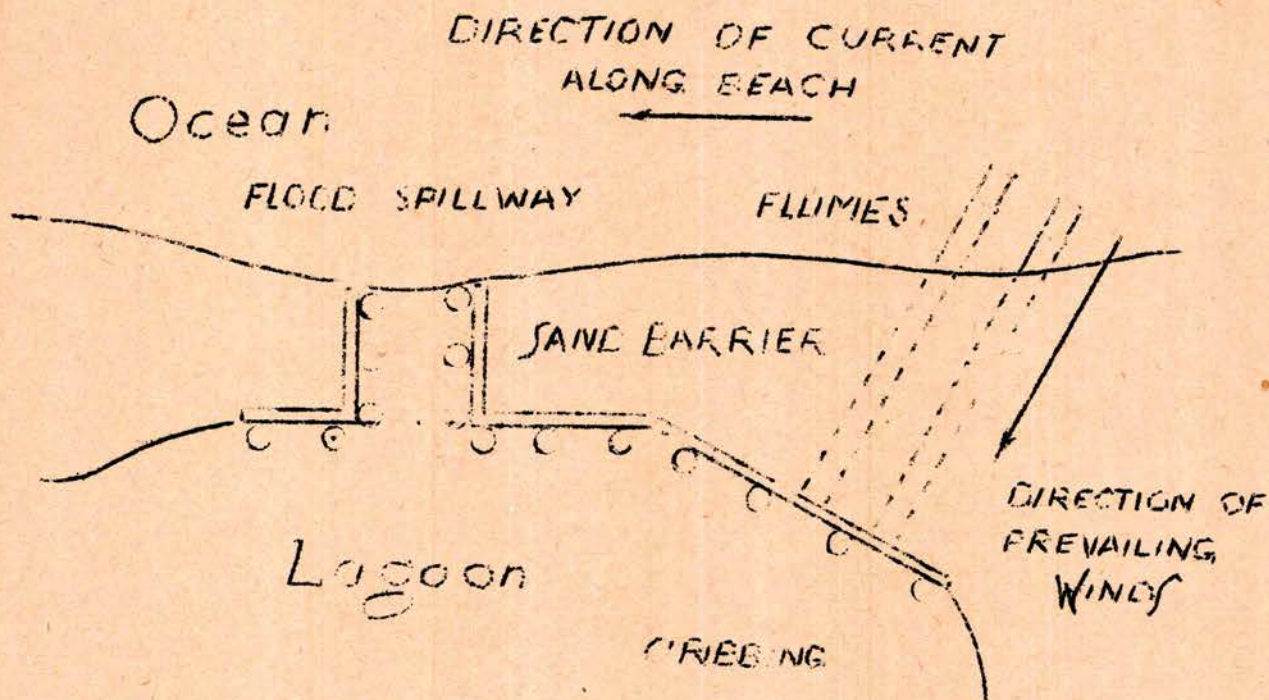 DIRECTION OF CURRENT
ALONG BEACH
Ocean
FLOOD SPILLWAY
FLUMES
SAND BARRIER
DIRECTION OF
PREVAILING
WINDS
Lagoon
CRIBBING